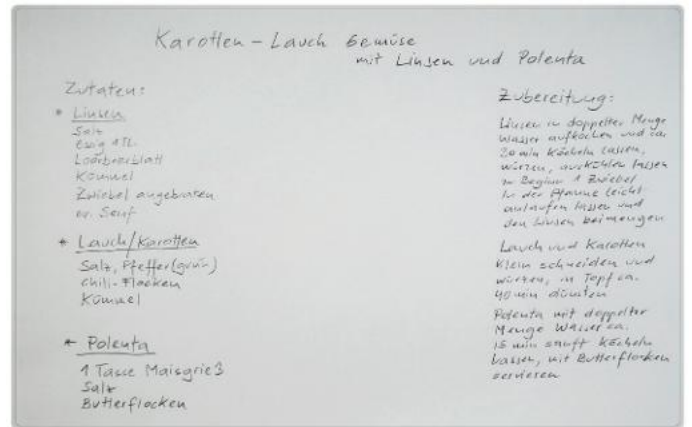 Karotten - Lauch Gemüse
mit Linsen und Polenta
Zutaten:
* Linsen
Salz
Essig 1TL
Loorbeerblatt
Kümmel
Zwiebel angebraten
ev. Senf
* Lauch/Karotten
Salz, Pfeffer (grün)
Chili-Flocken
Kümmel
* Polenta
1 Tasse Maisgrieß
Salz
Butterflocken
Zubereitung:
Linsen in doppelter Menge
Wasser aufkochen und ca.
20 min köcheln lassen,
würzen, auskühlen lassen
zu Beginn 1 Zwiebel
in der Pfanne leicht
anlaufen lassen und
den Linsen beimengen
Lauch und Karotten
klein schneiden und
würzen, im Topf ca.
40 min dünsten
Polenta mit doppelter
Menge Wasser ca.
15 min sanft köcheln
lassen, mit Butterflocken
servieren